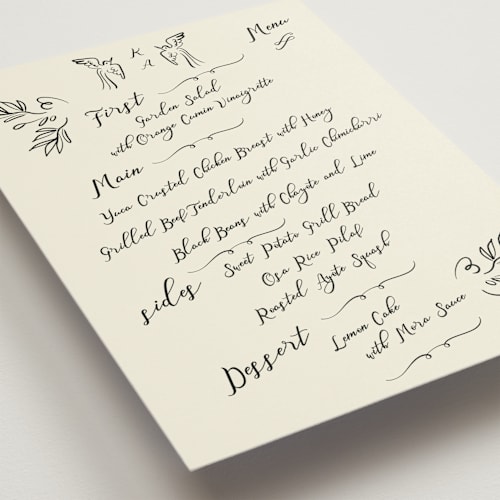 K
A
Menu
First
Garden Salad
with Orange Cumin Vinaigrette
Main
Yuca Crusted Chicken Breast with Honey
Grilled Beef Tenderloin with Garlic Chimichurri
Black Beans with Chayote and Lime
sides
Sweet Potato Grill Bread
Osa Rice Pilaf
Roasted Ayote Squash
Dessert
Lemon Cake
with Mora Sauce